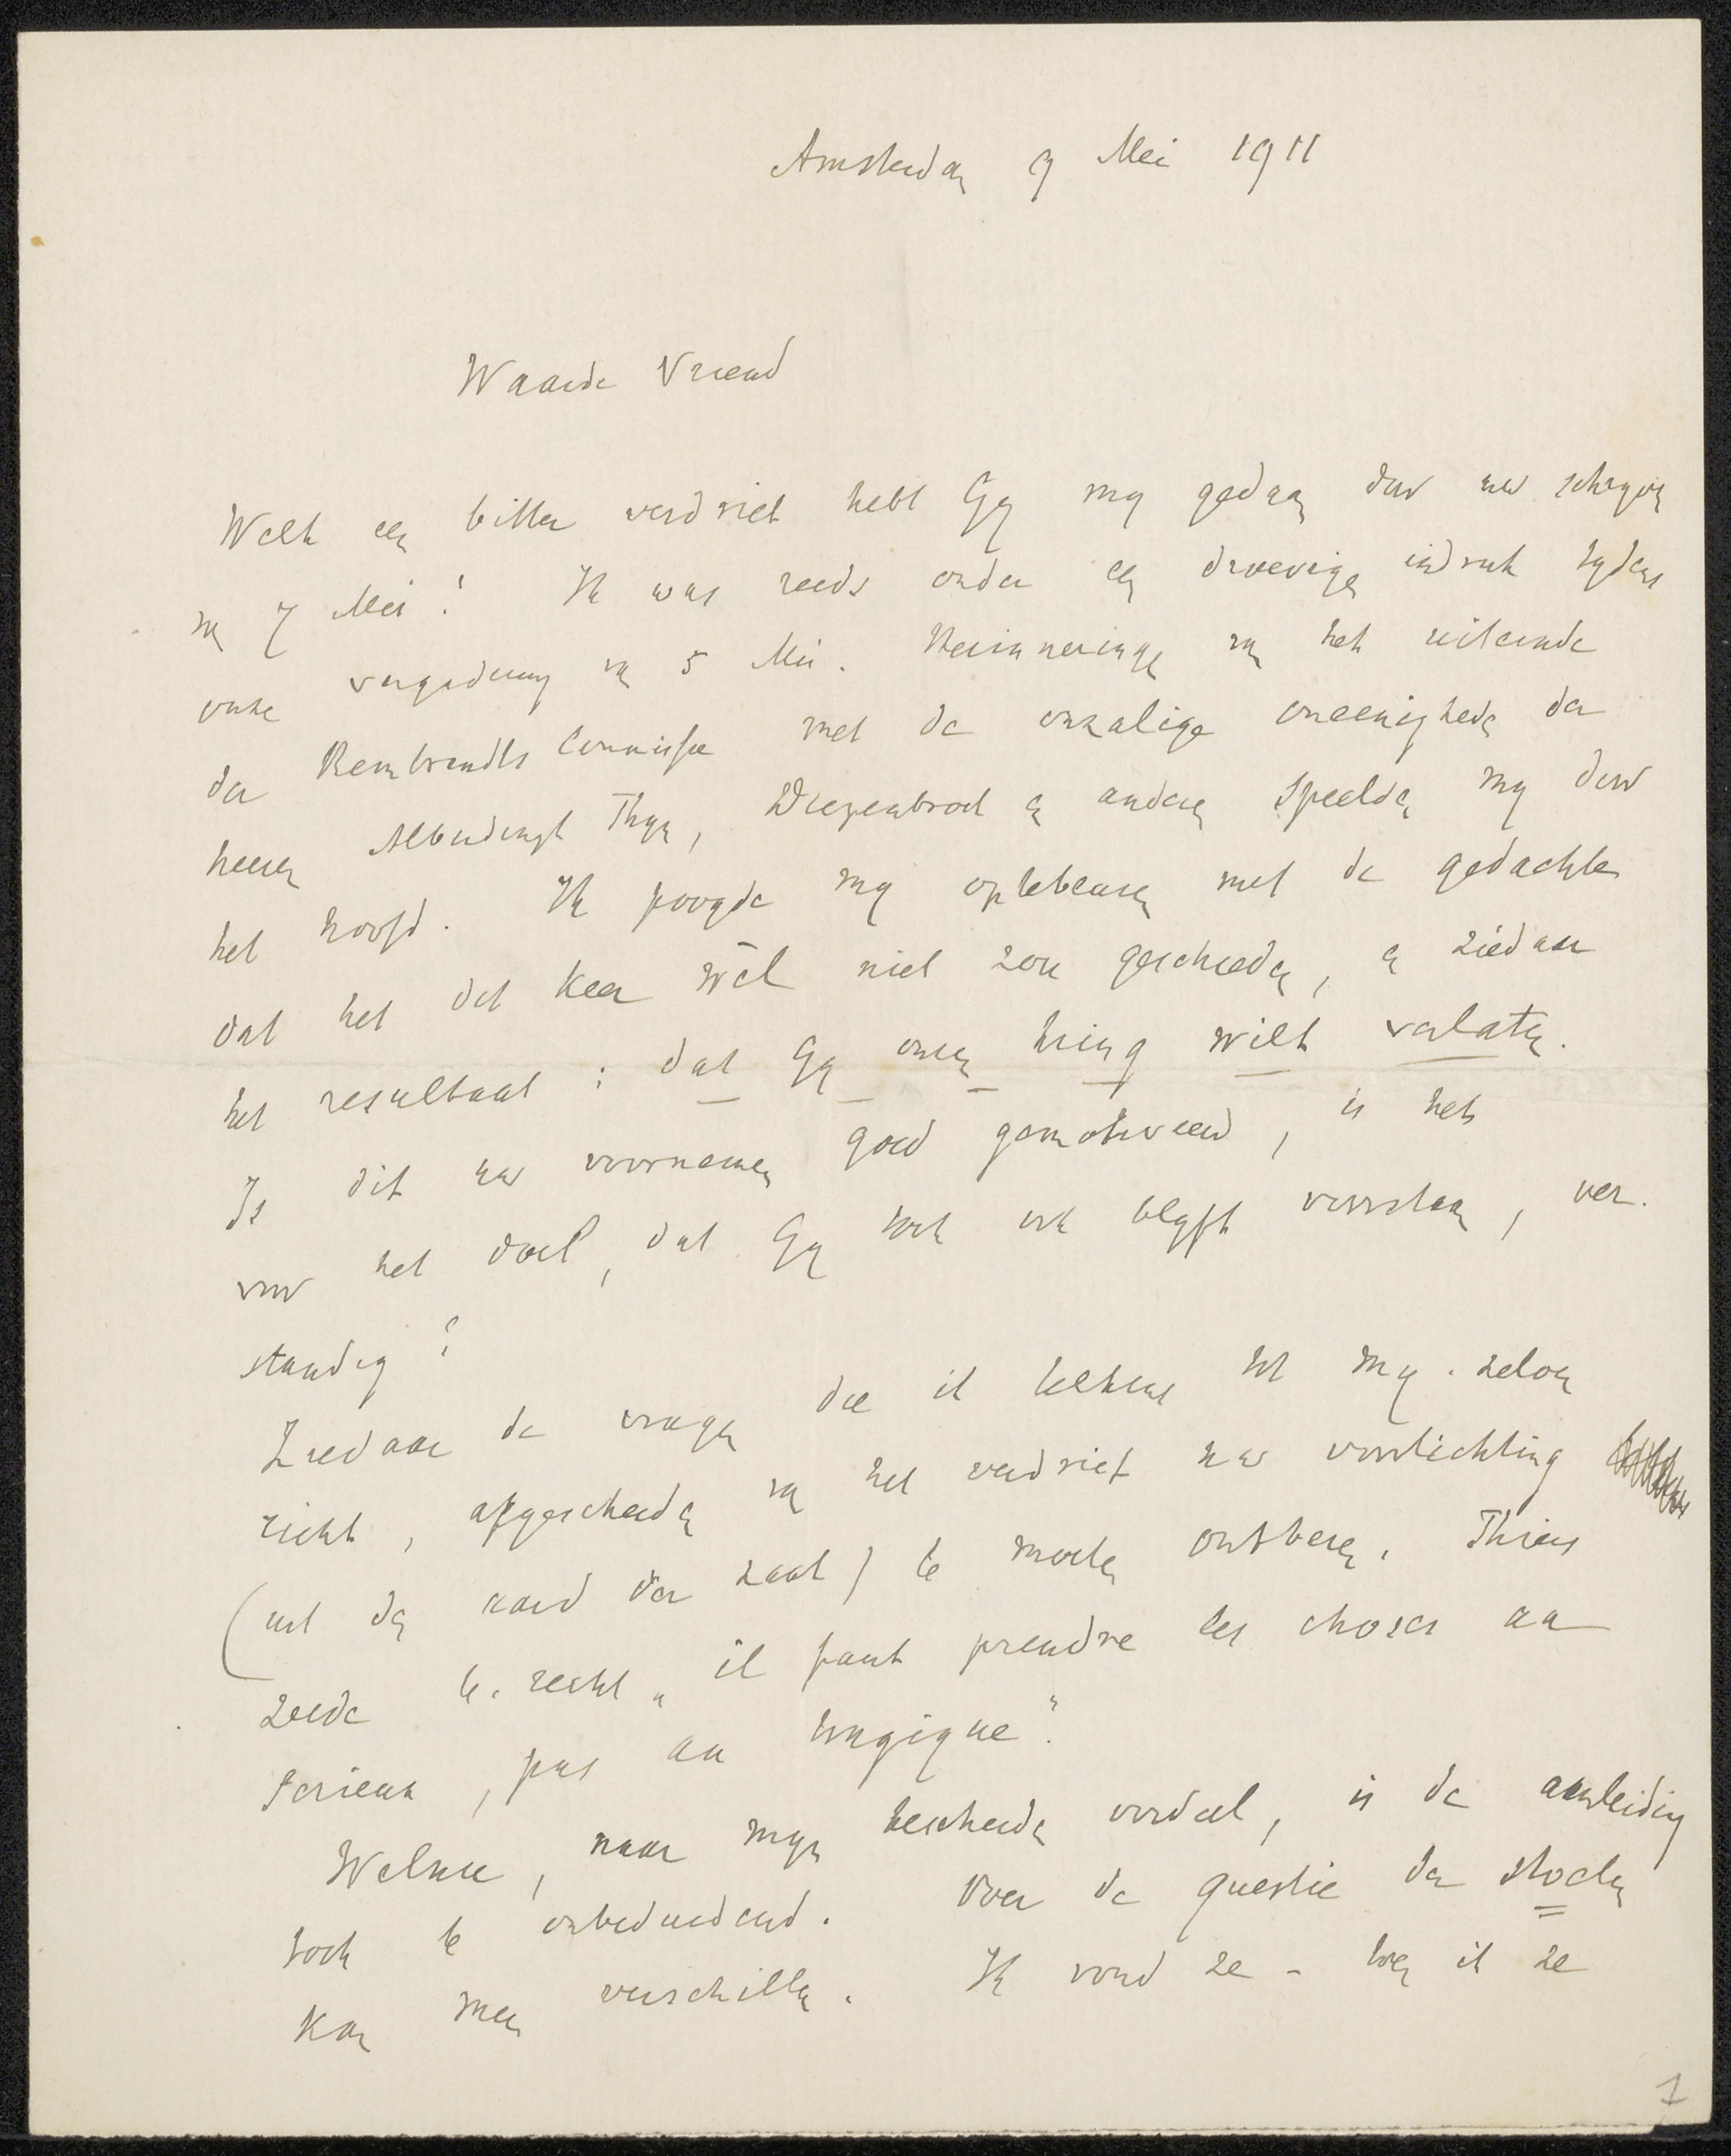 Amsterdam 9 Mei 1911
Waarde Vriend
Welk een bitter verdriet hebt Gij mij gedaan door uw schrijven
van 7 Mei! Ik was reeds onder een droevigen indruk tijdens
onze vergadering van 5 Mei. Herinneringen van het uiteinde
der Rembrandts Commissie met de onzalige oneenigheden der
heeren Alberdingk Thijm, Diepenbrock en anderen speelden mij door
het hoofd. Ik poogde mij optebeuren met de gedachte
dat het dit keer wèl niet zou geschieden, en ziedaar
het resultaat: dat Gij onzen kring wilt verlaten.
Is dit uw voornemen goed gemotiveerd, is het
voor het doel, dat Gij toch ook blijft voorstaan, ver-
standig?
Ziedaar de vragen die ik telkens tot mij-zelven
richt, afgescheiden van het verdriet uw voorlichting
(uit den aard der zaak) te moeten ontberen. Thiers
zeide te-recht "il faut prendre les choses au
serieux, pas au tragique".
Welnu, naar mijn bescheiden oordeel, is de aanleiding
toch te onbeduidend. Over de questie der stoelen
kan men verschillen. Ik vond ze - toen ik ze
1